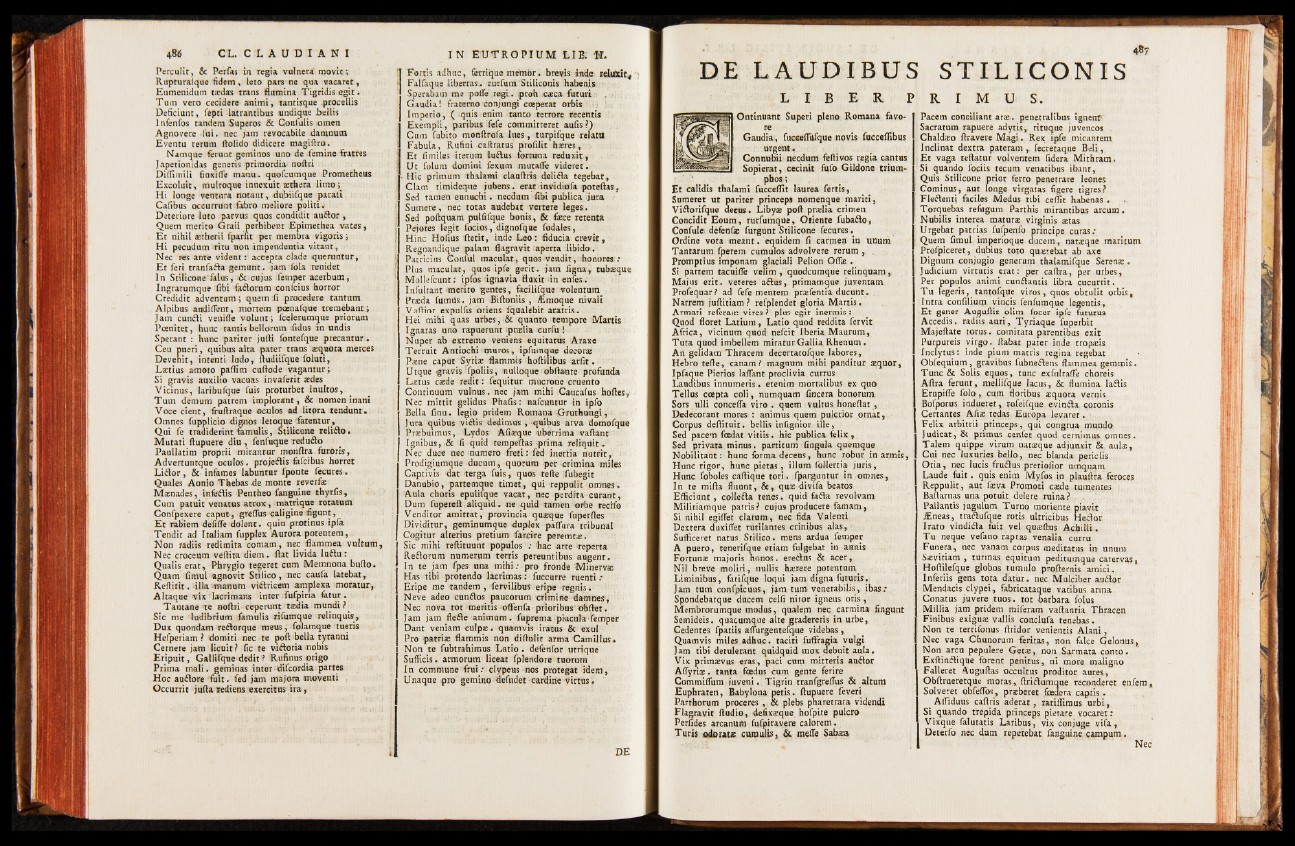 486 CL. CLAUDIANI
Perculit, & Perſas in regia vulnera movit;
Rupturaſque fidem, leto pars ne qua vacaret,
Eumenidum tædas trans flumina Tigridis egit.
Tum vero cecidere animi, tantiſque procellis
Deficiunt, ſepti latrantibus undique bellis
Infenſos tandem Superos & Conſulis omen
Agnovere ſui. nec jam revocabile damnum
Eventu rerum ſtolido didicere magiſtro.
Namque ferunt geminos uno de ſemine fratres
Japetionidas generis primordia noſtri
Diſſimili finxiſſe manu. quoſcumque Prometheus
Excoluit, multoque innexuit æthera limo;
Hi longe ventura notant, dubiiſque parati
Caſibus occurrunt fabro meliore politi.
Deteriore luto parvus quos condidit auctor,
Quem merito Graii perhibent Epimethea vates,
Et nihil ætherii ſparſit per membra vigoris;
Hi pecudum ritu non impendentia vitant,
Nec res ante vident: accepta clade queruntur,
Et ſeri tranſacta gemunt. jam ſola renidet
In Stilicone ſalus, & cujus ſemper acerbum,
Ingratumque ſibi factorum conſcius horror
Credidit adventum; quem ſi procedere tantum
Alpibus audiſſent, mortem pœnaſque tremebant;
Jam cuncti veniſſe volunt; ſcelerumque priorum
Pœnitet, hunc tantis bellorum fidus in undis
Sperant: hunc pariter juſti ſonteſque precantur.
Ceu pueri, quibus alta pater trans æquora merces
Devehit, intenti ludo, ſtudiiſque ſoluti,
Lætius amoto paſſim cuſtode vagantur;
Si gravis auxilio vacuas invaſerit ædes
Vicinus, laribuſque ſuis proturbet inultos,
Tum demum patrem implorant, & nomen inani
Voce cient, fruſtraque oculos ad litora tendunt.
Omnes ſupplicio dignos letoque fatentur,
Qui ſe tradiderint famulis, Stilicone relicto.
Mutati ſtupuere diu, ſenſuque reducto
Paullatim proprii mirantur monſtra furoris,
Advertuntque oculos. projectis faſcibus horret
Lictor, & infames labuntur ſponte ſecures.
Quales Aonio Thebas de monte reverſæ
Mænades, infectis Pentheo ſanguine thyrſis,
Cum patuit venatus atrox, matrique rotatum
Conſpexere caput, greſſus caligine figunt,
Et rabiem deſiſſe dolent. quin protinus ipſa
Tendit ad Italiam ſupplex Aurora potentem,
Non radiis redimita comam, nec flammea vultum,
Nec croceum veſtita diem. ſtat livida luctu:
Qualis erat, Phrygio tegeret cum Memnona buſto.
Quam ſimul agnovit Stilico, nec cauſa latebat,
Reſtitit. illa manum victricem amplexa moratur,
Altaque vix lacrimans inter ſuſpiria fatur.
Tantane te noſtri ceperunt tædia mundi?
Sic me ludibrium famulis riſumque relinquis,
Dux quondam rectorque meus, ſolamque tueris
Heſperiam? domiti nec te poſt bella tyranni
Cernere jam licuit? ſic te victoria nobis
Eripuit, Galliſque dedit? Rufinus origo
Prima mali. geminas inter diſcordia partes
Hoc auctore fuit. ſed jam majora moventi
Occurrit juſta rediens exercitus ira,
IN EUTROPIUM LIB. II.
Fortis adhuc, ferrique memor. brevis inde reluxit,
Falſaque libertas. rurſum Stiliconis habenis
Sperabam me poſſe regi. proh cæca futuri
Gaudia! fraterno conjungi cœperat orbis
Imperio, (quis enim tanto terrore recentis
Exempli, paribus ſeſe committeret auſis?)
Cum ſubito monſtroſa lues, turpiſque relatu
Fabula, Rufini caſtratus proſilit hæres,
Et ſimiles iterum luctus fortuna reduxit,
Ut ſolum domini ſexum mutaſſe videret.
Hic primum thalami clauſtris delicta tegebat,
Clam timideque jubens. erat invidioſa poteſtas,
Sed tamen eunuchi. necdum ſibi publica jura
Sumere, nec totas audebat vertere leges.
Sed poſtquam pulſiſque bonis, & fæce retenta
Pejores legit ſocios, dignoſque ſodales,
Hinc Hoſius ſtetit, inde Leo: fiducia crevit,
Regnandique palam flagravit aperta libido.
Patricius Conſul maculat, quos vendit, honores:
Plus maculat, quos ipſe gerit. jam ſigna, tubæque
Molleſcunt: ipſos ignavia fluxit in enſes.
Inſultant merito gentes, faciliſque volentum
Præda ſumus. jam Biſtoniis, Æmoque nivali
Vaſtior expulſis oriens ſqualebit aratris.
Hei mihi quas urbes, & quanto tempore Martis
Ignaras uno rapuerunt prælia curſu!
Nuper ab extremo veniens equitatus Araxe
Terruit Antiochi muros, ipſumque decoræ
Pæne caput Syriæ flammis hoſtilibus arſit.
Utque gravis ſpoliis, nulloque obſtante profunda
Lætus cæde redit: ſequitur mucrone cruento
Continuum vulnus. nec jam mihi Caucaſus hoſtes,
Nec mittit gelidus Phaſis: naſcuntur in ipſo
Bella ſinu. legio pridem Romana Gruthungi,
Jura quibus victis dedimus, quibus arva domoſque
Præbuimus, Lydos Aſiæque uberrima vaſtant
Ignibus, & ſi quid tempeſtas prima reliquit.
Nec duce nec numero freti: ſed inertia nutrit,
Prodigiumque ducum, quorum per crimina miles
Captivis dat terga ſuis, quos teſte ſubegit
Danubio, partemque timet, qui reppulit omnes.
Aula choris epuliſque vacat, nec perdita curant,
Dum ſupereſt aliquid. ne quid tamen orbe reciſo
Venditor amittat, provincia quæque ſuperſtes
Dividitur, geminumque duplex paſſura tribunal
Cogitur alterius pretium ſarcire peremtæ.
Sic mihi reſtituunt populos: hac arte reperta
Rectorum numerum terris pereuntibus augent.
In te jam ſpes una mihi: pro fronde Minervæ
Has tibi protendo lacrimas: ſuccurre ruenti:
Eripe me tandem, ſervilibus eripe regnis.
Neve adeo cunctos paucorum crimine damnes,
Nec nova tot meritis offenſa prioribus obſtet.
Jam jam flecte animum. ſuprema piacula ſemper
Dant veniam culpæ. quamvis iratus & exul
Pro patriæ flammis non diſtulit arma Camillus.
Non te ſubtrahimus Latio. defenſor utrique
Sufficis. armorum liceat ſplendore tuorum
In commune frui: clypeus nos protegat idem,
Unaque pro gemino deſudet cardine virtus.
DE
487
DE LAUDIBUS STILICONIS
LIBER PRIMUS.
COntinuant Superi pleno Romana favore
Gaudia, ſucceſſuſque novis ſucceſſibus
urgent.
Connubii necdum feſtivos regia cantus
Sopierat, cecinit fuſo Gildone triumphos;
Et calidis thalami ſucceſſit laurea ſertis,
Sumeret ut pariter princeps nomenque mariti,
Victoriſque decus. Libyæ poſt prælia crimen
Concidit Eoum, rurſumque, Oriente ſubacto,
Conſule defenſæ ſurgunt Stilicone ſecures.
Ordine vota meant. equidem ſi carmen in unum
Tantarum ſperem cumulos advolvere rerum,
Promptius imponam glaciali Pelion Oſſæ.
Si partem tacuiſſe velim, quodcumque relinquam,
Majus erit. veteres actus, primamque juventam
Proſequar? ad ſeſe mentem præſentia ducunt.
Narrem juſtitiam? reſplendet gloria Martis.
Armati referam vires? plus egit inermis:
Quod floret Latium, Latio quod reddita ſervit
Africa, vicinum quod neſcit Iberia Maurum,
Tuta quod imbellem miratur Gallia Rhenum.
An gelidam Thracem decertatoſque labores,
Hebro teſte, canam? magnum mihi panditur æquor,
Ipſaque Pierios laſſant proclivia currus
Laudibus innumeris. etenim mortalibus ex quo
Tellus cœpta coli, numquam ſincera bonorum
Sors ulli conceſſa viro. quem vultus honeſtat,
Dedecorant mores: animus quem pulcrior ornat,
Corpus deſtituit. bellis inſignior ille,
Sed pacem fœdat vitiis. hic publica felix,
Sed privata minus. partitum ſingula quemque
Nobilitant: hunc forma decens, hunc robur in armis,
Hunc rigor, hunc pietas, illum ſollertia juris,
Hunc ſoboles caſtique tori. ſparguntur in omnes,
In te miſta fluunt, &, quæ diviſa beatos
Efficiunt, collecta tenes. quid facta revolvam
Militiamque patris? cujus producere famam,
Si nihil egiſſet clarum, nec fida Valenti
Dextera duxiſſet rutilantes crinibus alas,
Sufficeret natus Stilico. mens ardua ſemper
A puero, teneriſque etiam fulgebat in annis
Fortunæ majoris honos. erectus & acer,
Nil breve moliri, nullis hærere potentum
Liminibus, fatiſque loqui jam digna futuris.
Jam tum conſpicuus, jam tum venerabilis, ibas:
Spondebatque ducem celſi nitor igneus oris,
Membrorumque modus, qualem nec carmina fingunt
Semideis. quacumque alte gradereris in urbe,
Cedentes ſpatiis aſſurgenteſque videbas,
Quamvis miles adhuc. taciti ſuffragia vulgi
Jam tibi detulerant quidquid mox debuit aula.
Vix primævus eras, paci cum mitteris auctor
Aſſyriæ. tanta fœdus cum gente ferire
Commiſſum juveni. Tigrin tranſgreſſus & altum
Euphraten, Babylona petis. ſtupuere ſeveri
Parthorum proceres, & plebs pharetrata videndi
Flagravit ſtudio, defixæque hoſpite pulcro
Perſides arcanum ſuſpiravere calorem.
Turis odoratæ cumulis, & meſſe Sabæa
Pacem conciliant aræ. penetralibus ignem
Sacratum rapuere adytis, rituque juvencos
Chaldæo ſtravere Magi. Rex ipſe micantem
Inclinat dextra pateram, ſecretaque Beli,
Et vaga teſtatur volventem ſidera Mithram.
Si quando ſociis tecum venatibus ibant,
Quis Stilicone prior ferro penetrare leones
Cominus, aut longe virgatas figere tigres?
Flectenti faciles Medus tibi ceſſit habenas.
Torquebas refugum Parthis mirantibus arcum.
Nubilis interea maturæ virginis ætas
Urgebat patrias ſuſpenſo principe curas:
Quem ſimul imperioque ducem, natæque maritum
Proſpiceret, dubius toto quærebat ab axe
Dignum conjugio generum thalamiſque Serenæ.
Judicium virtutis erat: per caſtra, per urbes,
Per populos animi cunctantis libra cucurrit.
Tu legeris, tantoſque viros, quos obtulit orbis,
Intra conſilium vincis ſenſumque legentis,
Et gener Auguſtis olim ſocer ipſe futurus
Accedis. radiis auri, Tyriaque ſuperbit
Majeſtate torus. comitata parentibus exit
Purpureis virgo. ſtabat pater inde tropæis
Inclytus: inde pium matris regina tegebat
Obſequium, gravibus ſubnectens flammea gemmis.
Tunc & Solis equos, tunc exſultaſſe choreis
Aſtra ferunt, melliſque lacus, & flumina lactis
Erupiſſe ſolo, cum floribus æquora vernis
Boſporus indueret, roſeiſque evincta coronis
Certantes Aſiæ tedas Europa levaret.
Felix arbitrii princeps, qui congrua mundo
Judicat, & primus cenſet quod cernimus omnes.
Talem quippe virum natæque adjunxit & aulæ,
Cui nec luxuries bello, nec blanda periclis
Otia, nec lucis fructus pretioſior umquam
Laude fuit. quis enim Myſos in plauſtra feroces
Reppulit, aut ſæva Promoti cæde tumentes
Baſtarnas una potuit delere ruina?
Pallantis jugulum Turno moriente piavit
Æneas, tractuſque rotis ultricibus Hector
Irato vindicta fuit vel quæſtus Achilli.
Tu neque veſano raptas venalia curru
Funera, nec vanam corpus meditatus in unum
Sævitiam, turmas equitum peditumque catervas,
Hoſtileſque globos tumulo proſternis amici.
Inferiis gens tota datur. nec Mulciber auctor
Mendacis clypei, fabricataque vatibus arma
Conatus juvere tuos. tot barbara ſolus
Millia jam pridem miſeram vaſtantia Thracen
Finibus exiguæ vallis concluſa tenebas.
Non te terriſonus ſtridor venientis Alani,
Nec vaga Chunorum feritas, non falce Gelonus,
Non arcu pepulere Getæ, non Sarmata conto.
Exſtinctique forent penitus, ni more maligno
Falleret Auguſtas occultus proditor aures,
Obſtrueretque moras, ſtrictumque reconderet enſem,
Solveret obſeſſos, præberet fœdera captis.
Aſſiduus caſtris aderat, rariſſimus urbi,
Si quando trepida princeps pietate vocaret:
Vixque ſalutatis Laribus, vix conjuge viſa,
Deterſo nec dum repetebat ſanguine campum.
Nec